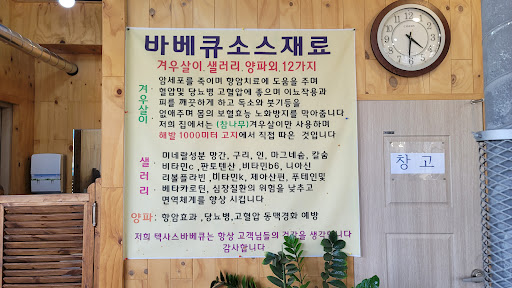 바베큐소스재료
겨우살이.샐러리.양파외.12가지
겨우살이
암세포를 죽이며 항암치료에 도움을 주며
혈압및 당뇨병 고혈압에 좋으며 이뇨작용과
피를 깨끗하게 하고 독소와 붓기등을
없애주며 몸의 보혈효능 노화방지를 막아줍니다.
저희 집에서는 (참나무)겨우살이만 사용하며
해발 1000미터 고지에서 직접 따온 것입니다
샐러리
미네랄성분 망간, 구리, 인, 마그네슘, 칼슘
비타민c ,판토텐산 , 비타민b6, 니아신
리볼플라빈 ,비타민k, 제아산틴, 푸테인및
베타카로틴, 심장질환의 위험을 낮추고
면역체계를 향상 시킵니다
양파: 항암효과 ,당뇨병,고혈압 동맥경화 예방
저희 텍사스바베큐는 항상 고객님들의 건강을 생각합니다
감사합니다
창 고